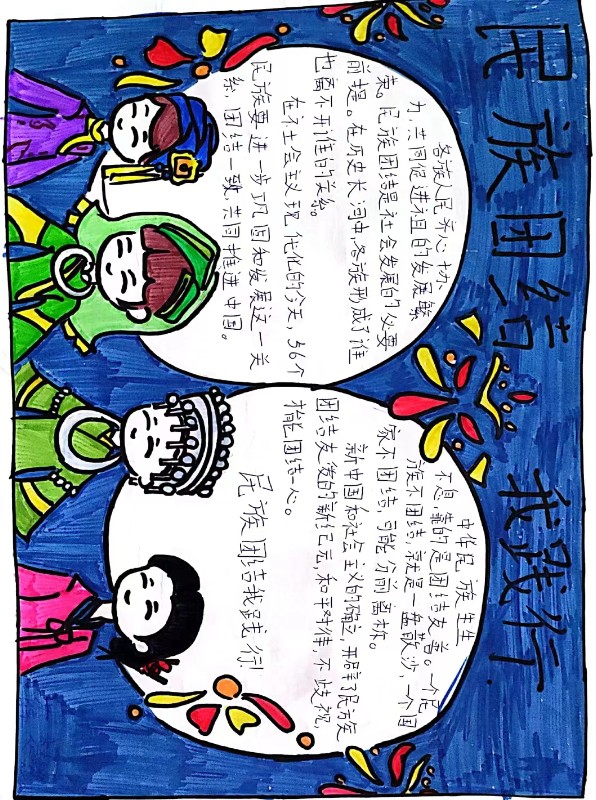 民族团结 我践行
各族人民齐心协
力,共同促进祖国的发展繁
荣。民族团结是社会发展的必要
前提。在历史长河中,各族形成了谁
也离不开谁的关系。
在社会主义现代化的今天,56个
民族要进一步巩固和发展这一关
系,团结一致,共同推进中国。
中华民族生生
不息,靠的是团结友善。一个民
族不团结,就是一盘散沙,一个国
家不团结,可能分崩离析。
新中国和社会主义的确立,开辟了民族
团结友爱的新纪元,和平对待,不歧视,
才能团结一心。
民族团结我践行!